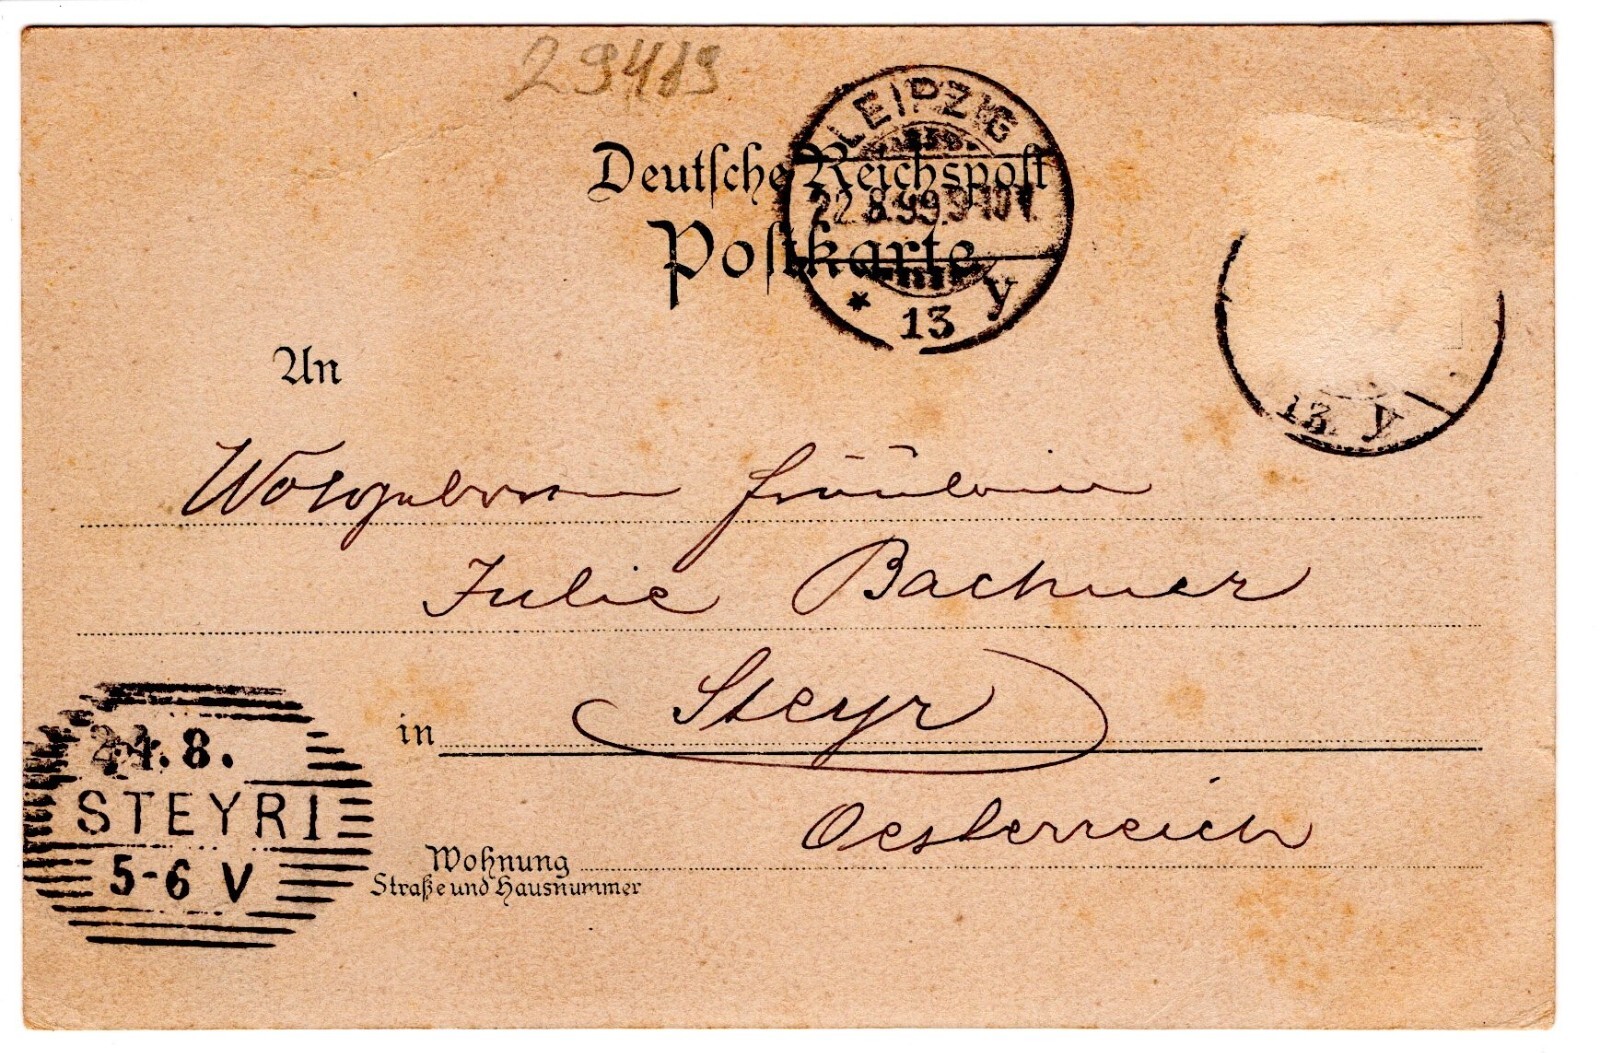 29419
LEIPZIG
22.8.99.9-10V.
* 13 y
Deutſche Reichspoſt
Poſtkarte
13. y
An
Wolgeboren Fräulein
Julie Bachner
in Steyr
Oesterreich
24.8.
STEYR 1
5-6 V
Wohnung
Straße und Hausnummer